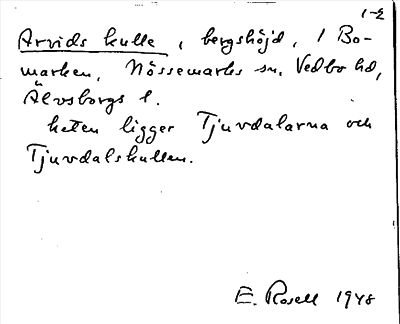 1-2
Arvids kulle, bergshöjd, i Bo-
marken, Nössemarks sn, Vedbo hd,
Älvsborgs l.
heten ligger Tjuvdalarna och
Tjuvdalskullen.
E. Rosell 1948